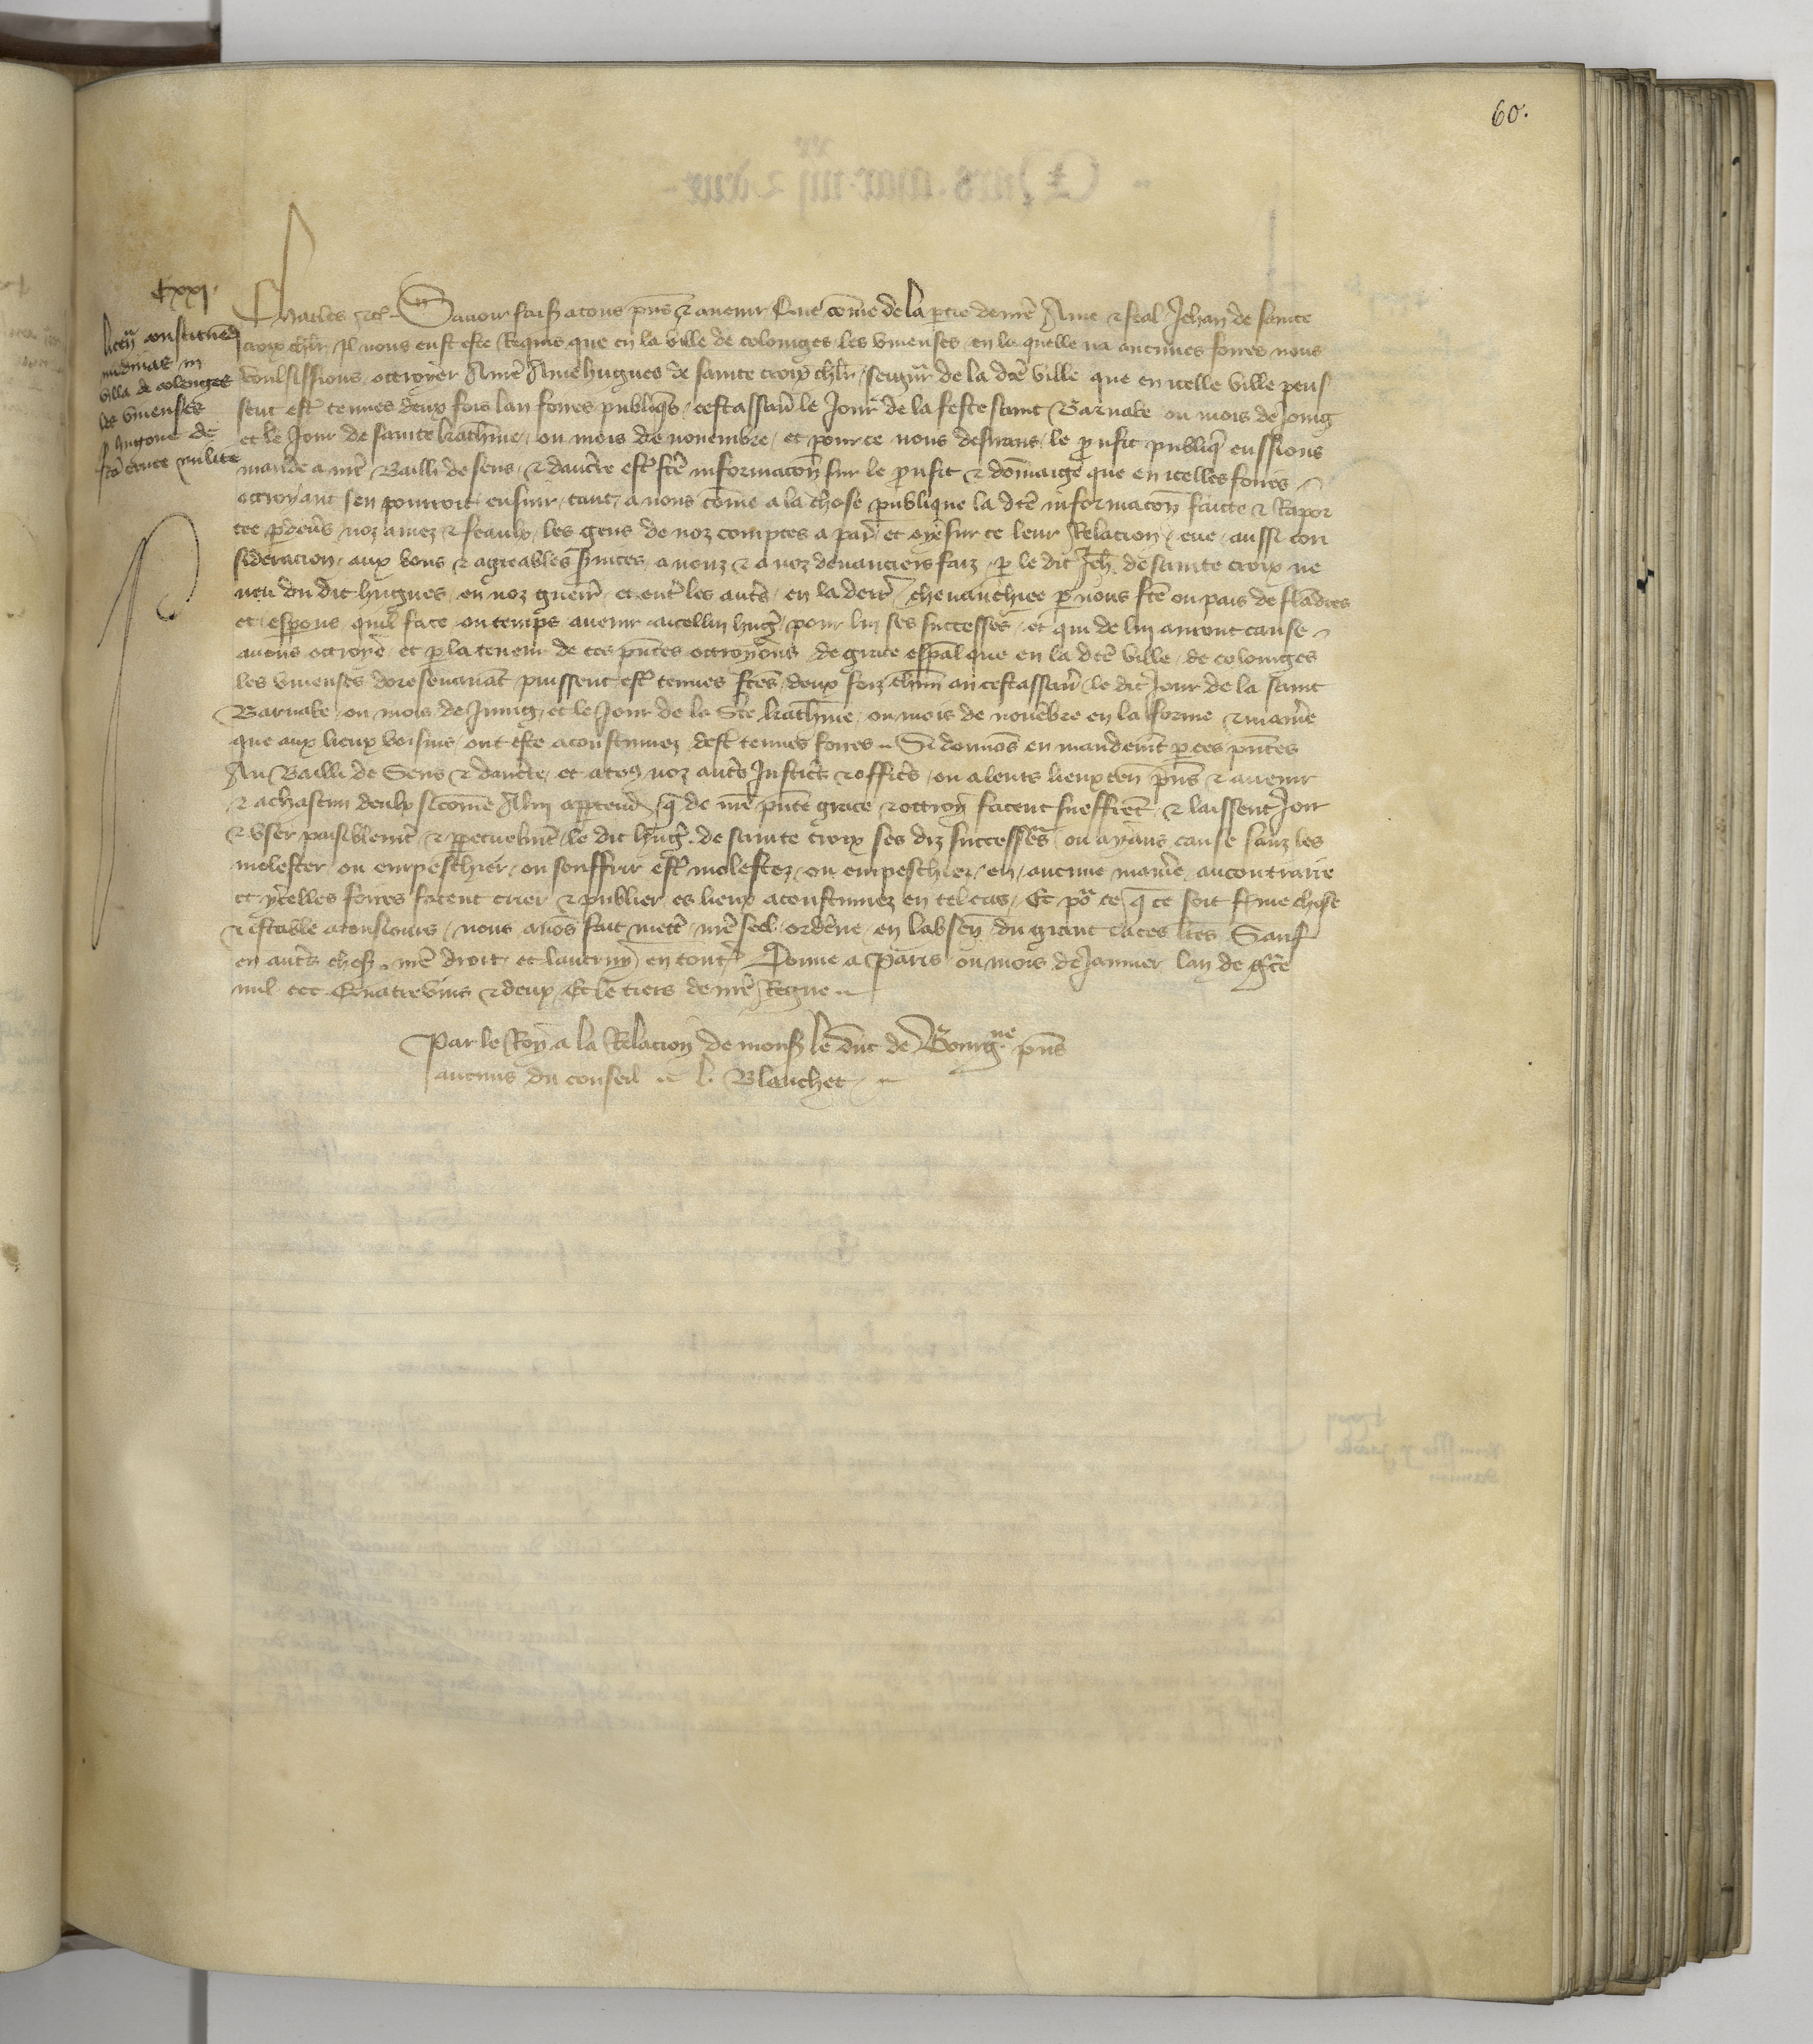 60.
Cxxj.
licen constituend
nundinas in
villa de colenges
les vineuses
p hugone de
sca cruce milite
Charles etc Savoir faisons a tous pns & avenir Que come de la partie de nre Ame & feal Jehan de sainte
croix chlr Il nous eust este Requis que en la ville de colonges les vineuses en la quelle na aucunes foires nous
voulsissions octroyer A nre Ame hugues de sainte croix chlr seigneur de la dce ville que en icelle ville peus
sent estre tenues deux fois lan foires publiques cestassavr le Jour de la feste saint Barnabe ou mois de Joing
et le Jour de sainte katherine ou mois de novembre et pour ce nous desirans le proufit publiq eussions
mande a nre Bailli de sens & daucerre estre fcte informacon sur le proufit & domaige que en icelles foires
octroyant sen pourroit ensuir tant a nous come a la chose publique la dce informacon faicte & Rapor
tee p devs noz amez & feaulx les gens de noz comptes a paris et oye sur ce leur Relacion eue aussi con
sideracion aux bons & agreables services a nous & a noz devanciers faiz p le dit Jeh de sainte croix ne
veu du dit hugues en noz guerres et entre les autres en la derre chevauchiee p nous fcte ou pais de flandres
et esperons quil face ou temps avenir a icellui hug pour lui ses successes et qui de lui auront cause
avons octroye et p la teneur de ces pntes octroyons de grace espal que en la dce ville de colonges
les vineuses doresenavat puissent estre tenues fces deux foiz chun an cestassavr le dit Jour de la saint
Barnabe ou mois de Juing et le Jour de la Ste katherine ou mois de novebre en la forme & maniere
que aux lieux voisins ont este acoustumez destre tenues foires Si donnos en mandemt p ces pntes
Au Bailli de Sens & daucerre et a tous noz autres Justicrs & officrs ou a leurs lieuxten pns & avenir
& a chascun deulx si come A lui apptendra q de nre pnte grace & octroy facent sueffrent & laissent Joir
& user paisiblemt & ppetuelmt le dit hug de sainte croix ses diz successes ou ayans cause sanz les
molester ou empeschier ou souffrir estre molestez ou empeschiez en aucune maniere au contraire
et ycelles foires facent crier & publier es lieux acoustumez en tel cas Et por ce q ce soit ferme chose
& estable a tousiours nous avos fait mettre nre seel ordene en labsen du grant a ces lres Sauf
en autres choses nre droit et lautruy en toutes Donne a Paris ou mois de Janvier lan de grce
mil ccc Quatrevins & deux Et le tiers de nre Regne
Par le Roy a la Relacion de mons le duc de Bourgne pns
aucuns du conseil l. Blanchet